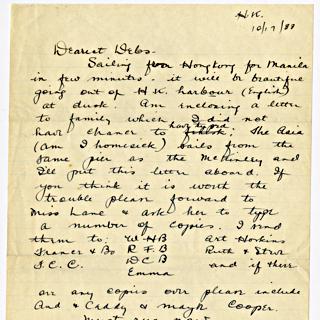 H.K.
10/17/33
Dearest Debs-
Sailing from Hongkong for Manila
in few minutes. it will be beautiful
going out of H.K. harbour (English)
at dusk. Am enclosing a letter
to family which I did not
have chance to finish; The Asia
(am I homesick) sails from the
same pier as the McKinley and
I'll put this letter aboard. If
you think it is worth the
trouble please forward to
Miss Lane & ask her to type
a number of copies. I need
them to: WHB Art Hopkins
Frances & Bo RFB Ruth & Steve
J.C.C. DCB and if there
Emma
are any copies over please include
And & Caddy & maybe Cooper.